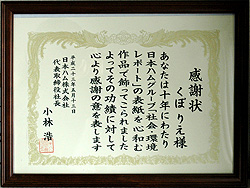 感謝状
くぼりえ様
あなたは十年にわたり
日本ハムグループ「社会・環境
レポート」の表紙を心和む
作品で飾ってこられました
よってその功績に対して
心より感謝の意を表します
平成二十三年五月十三日
日本ハム株式会社
代表取締役社長
小林 浩